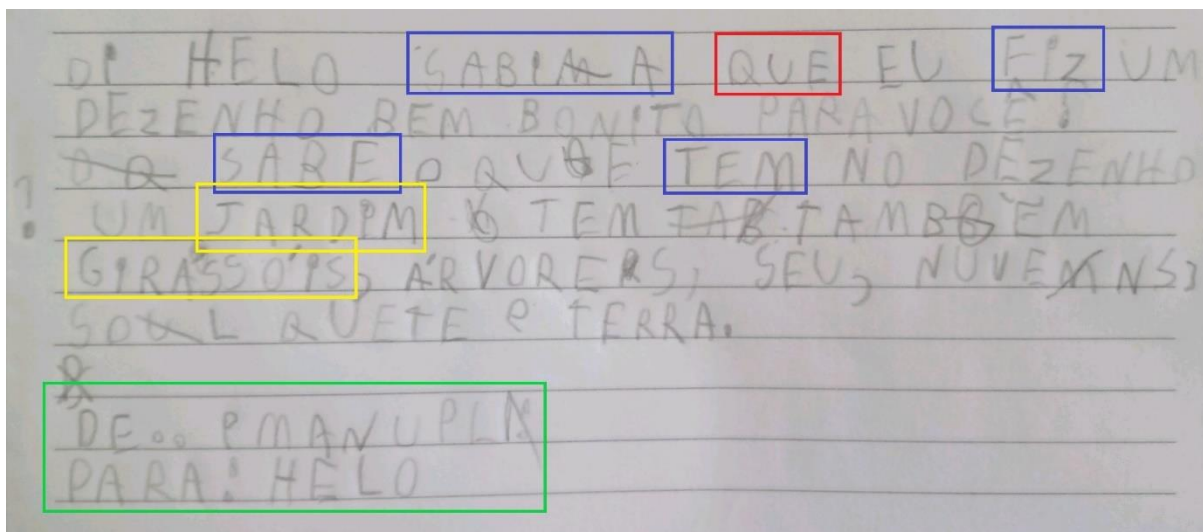 OI HELO SABIA QUE EU FIZ UM
DEZENHO BEM BONITO PARA VOCÊ!
SABE O QUE TEM NO DEZENHO
? UM JARDIM TEM TAMBÉM
GIRASSÓIS, ÁRVORERS, SEU, NUVENS,
SOL QUETE e TERRA.
DE.. EMANUELA
PARA: HELO